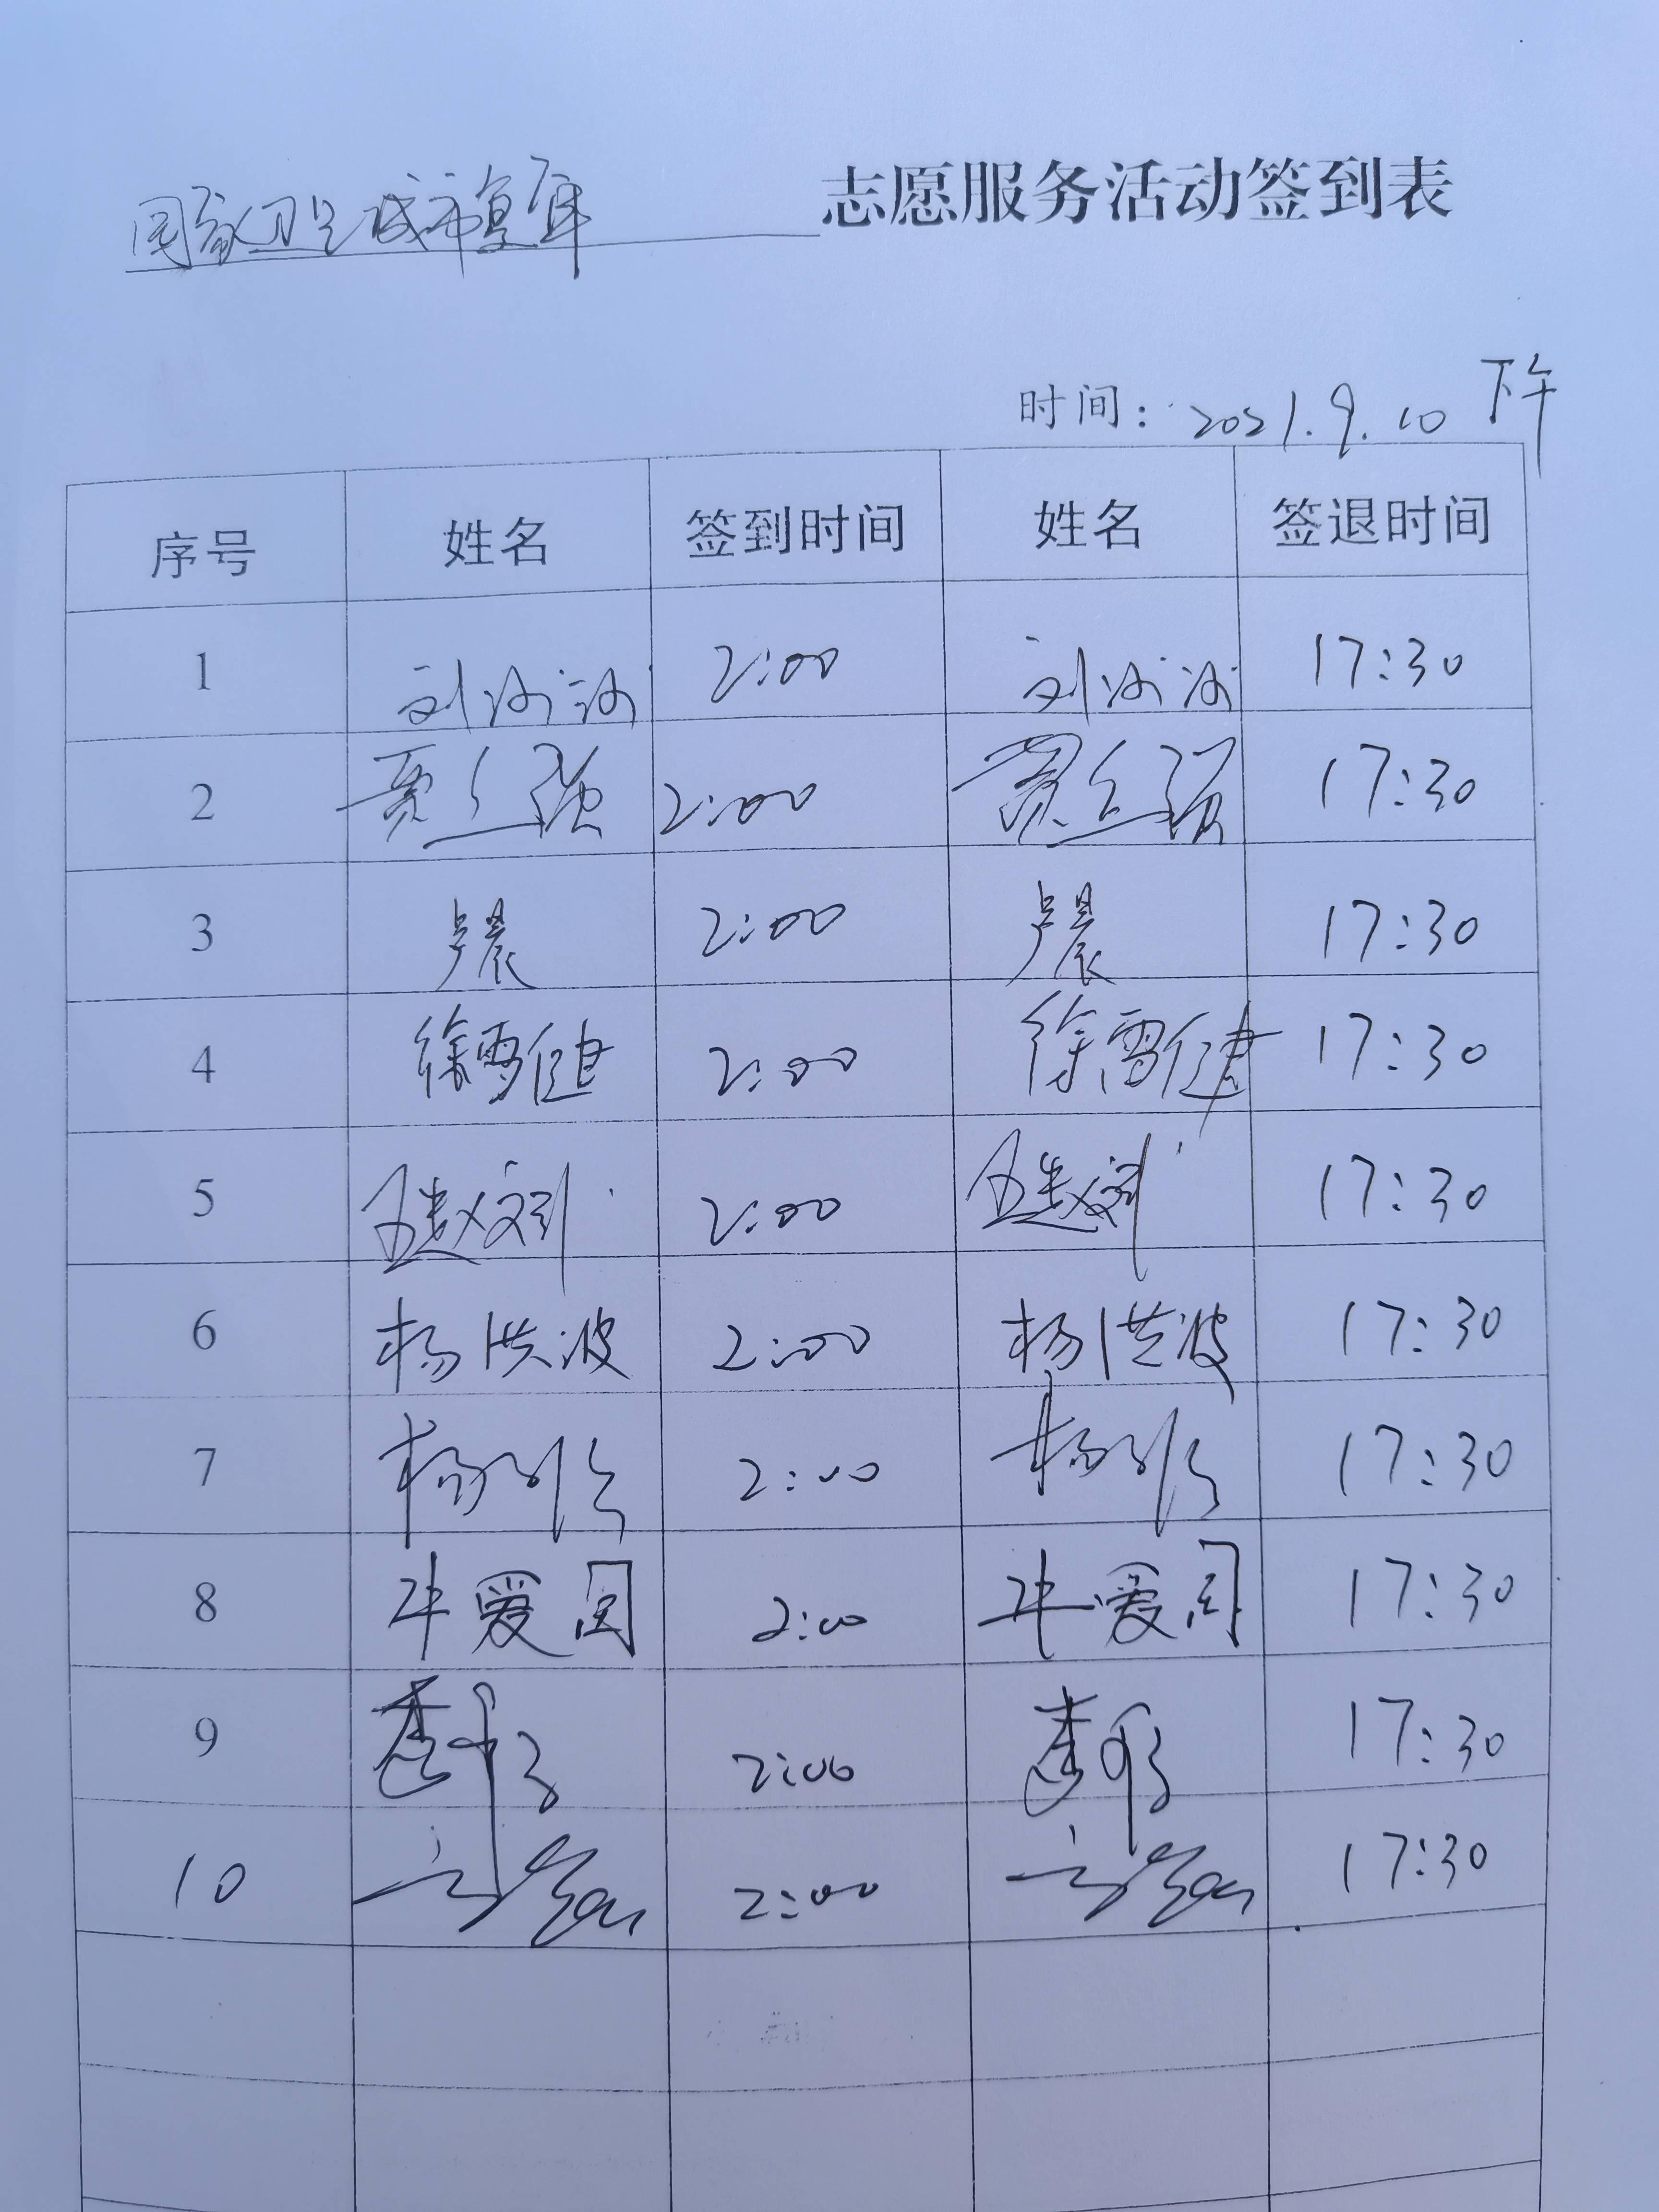 国家卫生城市复审 志愿服务活动签到表
时间：2021.9.10 下午
序号 姓名 签到时间 姓名 签退时间
1 2:00 17:30
2 2:00 17:30
3 卢晨 2:00 卢晨 17:30
4 徐雪健 2:00 徐雪健 17:30
5 2:00 17:30
6 杨洪波 2:00 杨洪波 17:30
7 杨 2:00 杨 17:30
8 牛爱国 2:00 牛爱国 17:30
9 2:00 17:30
10 2:00 17:30